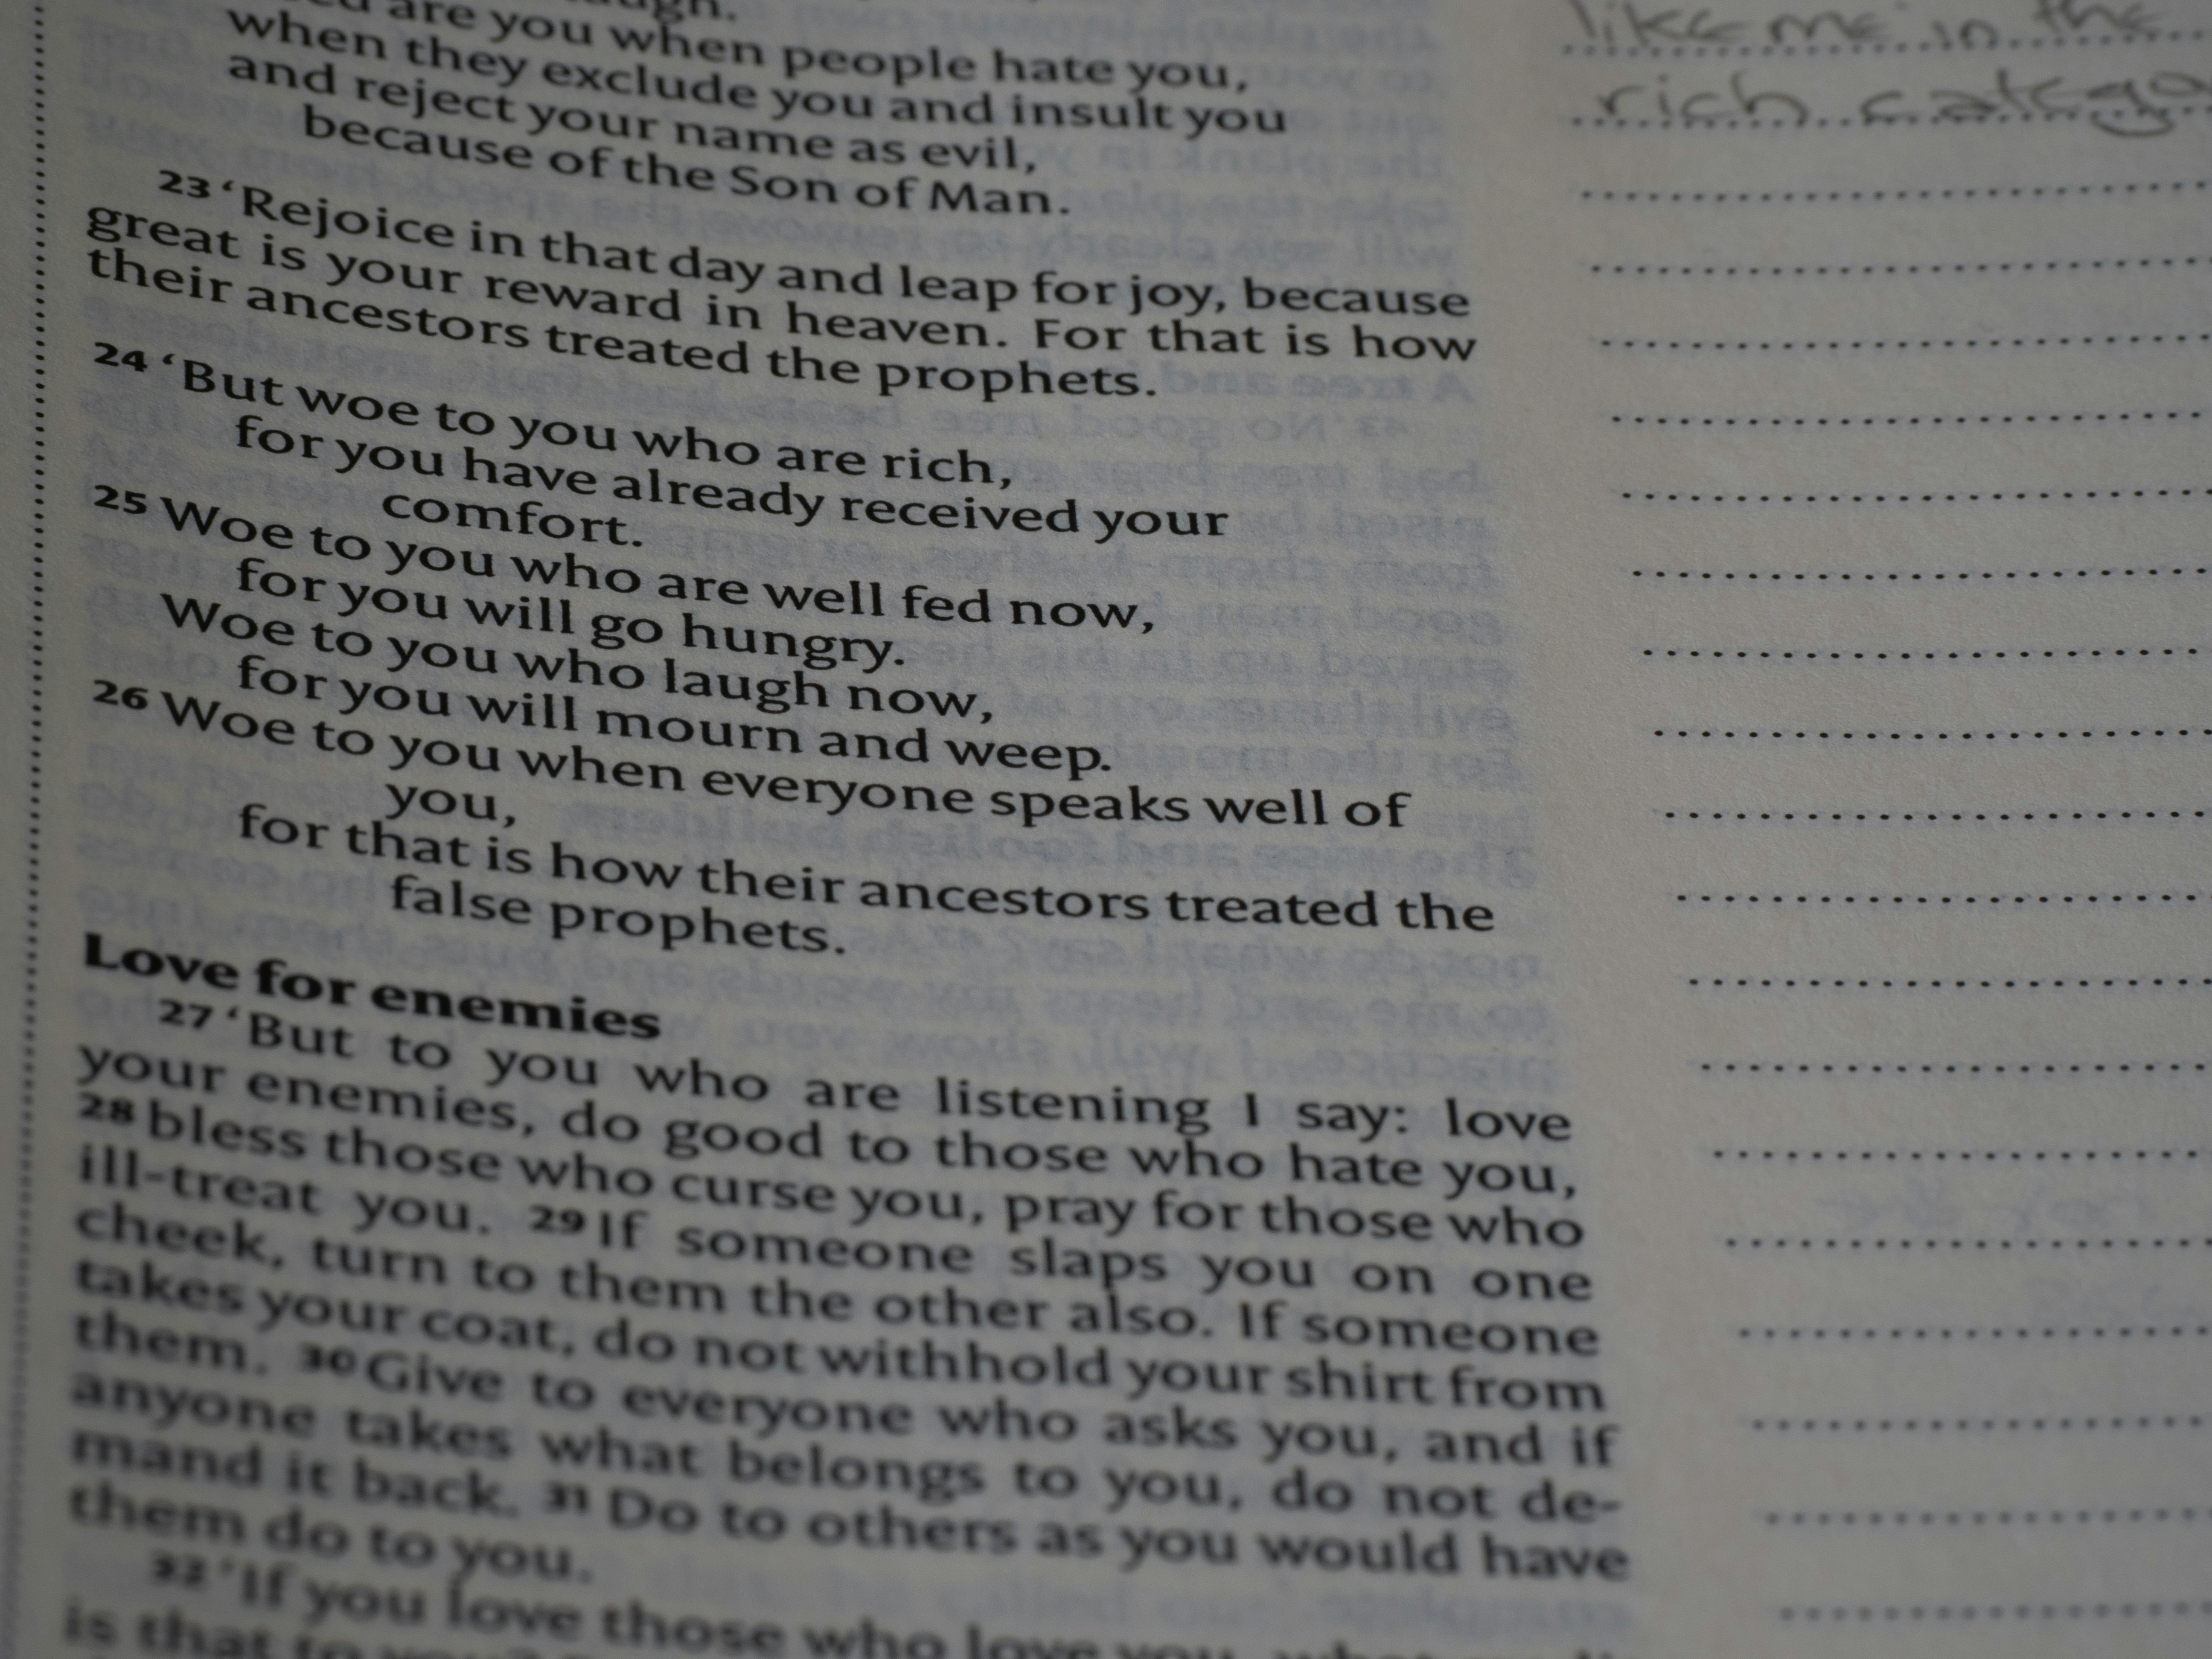 are you when people hate you,
when they exclude you and insult you
and reject your name as evil,
because of the Son of Man.
23 ‘Rejoice in that day and leap for joy, because
great is your reward in heaven. For that is how
their ancestors treated the prophets.
24 ‘But woe to you who are rich,
for you have already received your
comfort.
25 Woe to you who are well fed now,
for you will go hungry.
Woe to you who laugh now,
for you will mourn and weep.
26 Woe to you when everyone speaks well of
you,
for that is how their ancestors treated the
false prophets.
Love for enemies
27 ‘But to you who are listening I say: love
your enemies, do good to those who hate you,
28 bless those who curse you, pray for those who
ill-treat you. 29 If someone slaps you on one
cheek, turn to them the other also. If someone
takes your coat, do not withhold your shirt from
them. 30 Give to everyone who asks you, and if
anyone takes what belongs to you, do not de-
mand it back. 31 Do to others as you would have
them do to you.
32 ‘If you love those who love you,
is that to
like me in the
rich catego